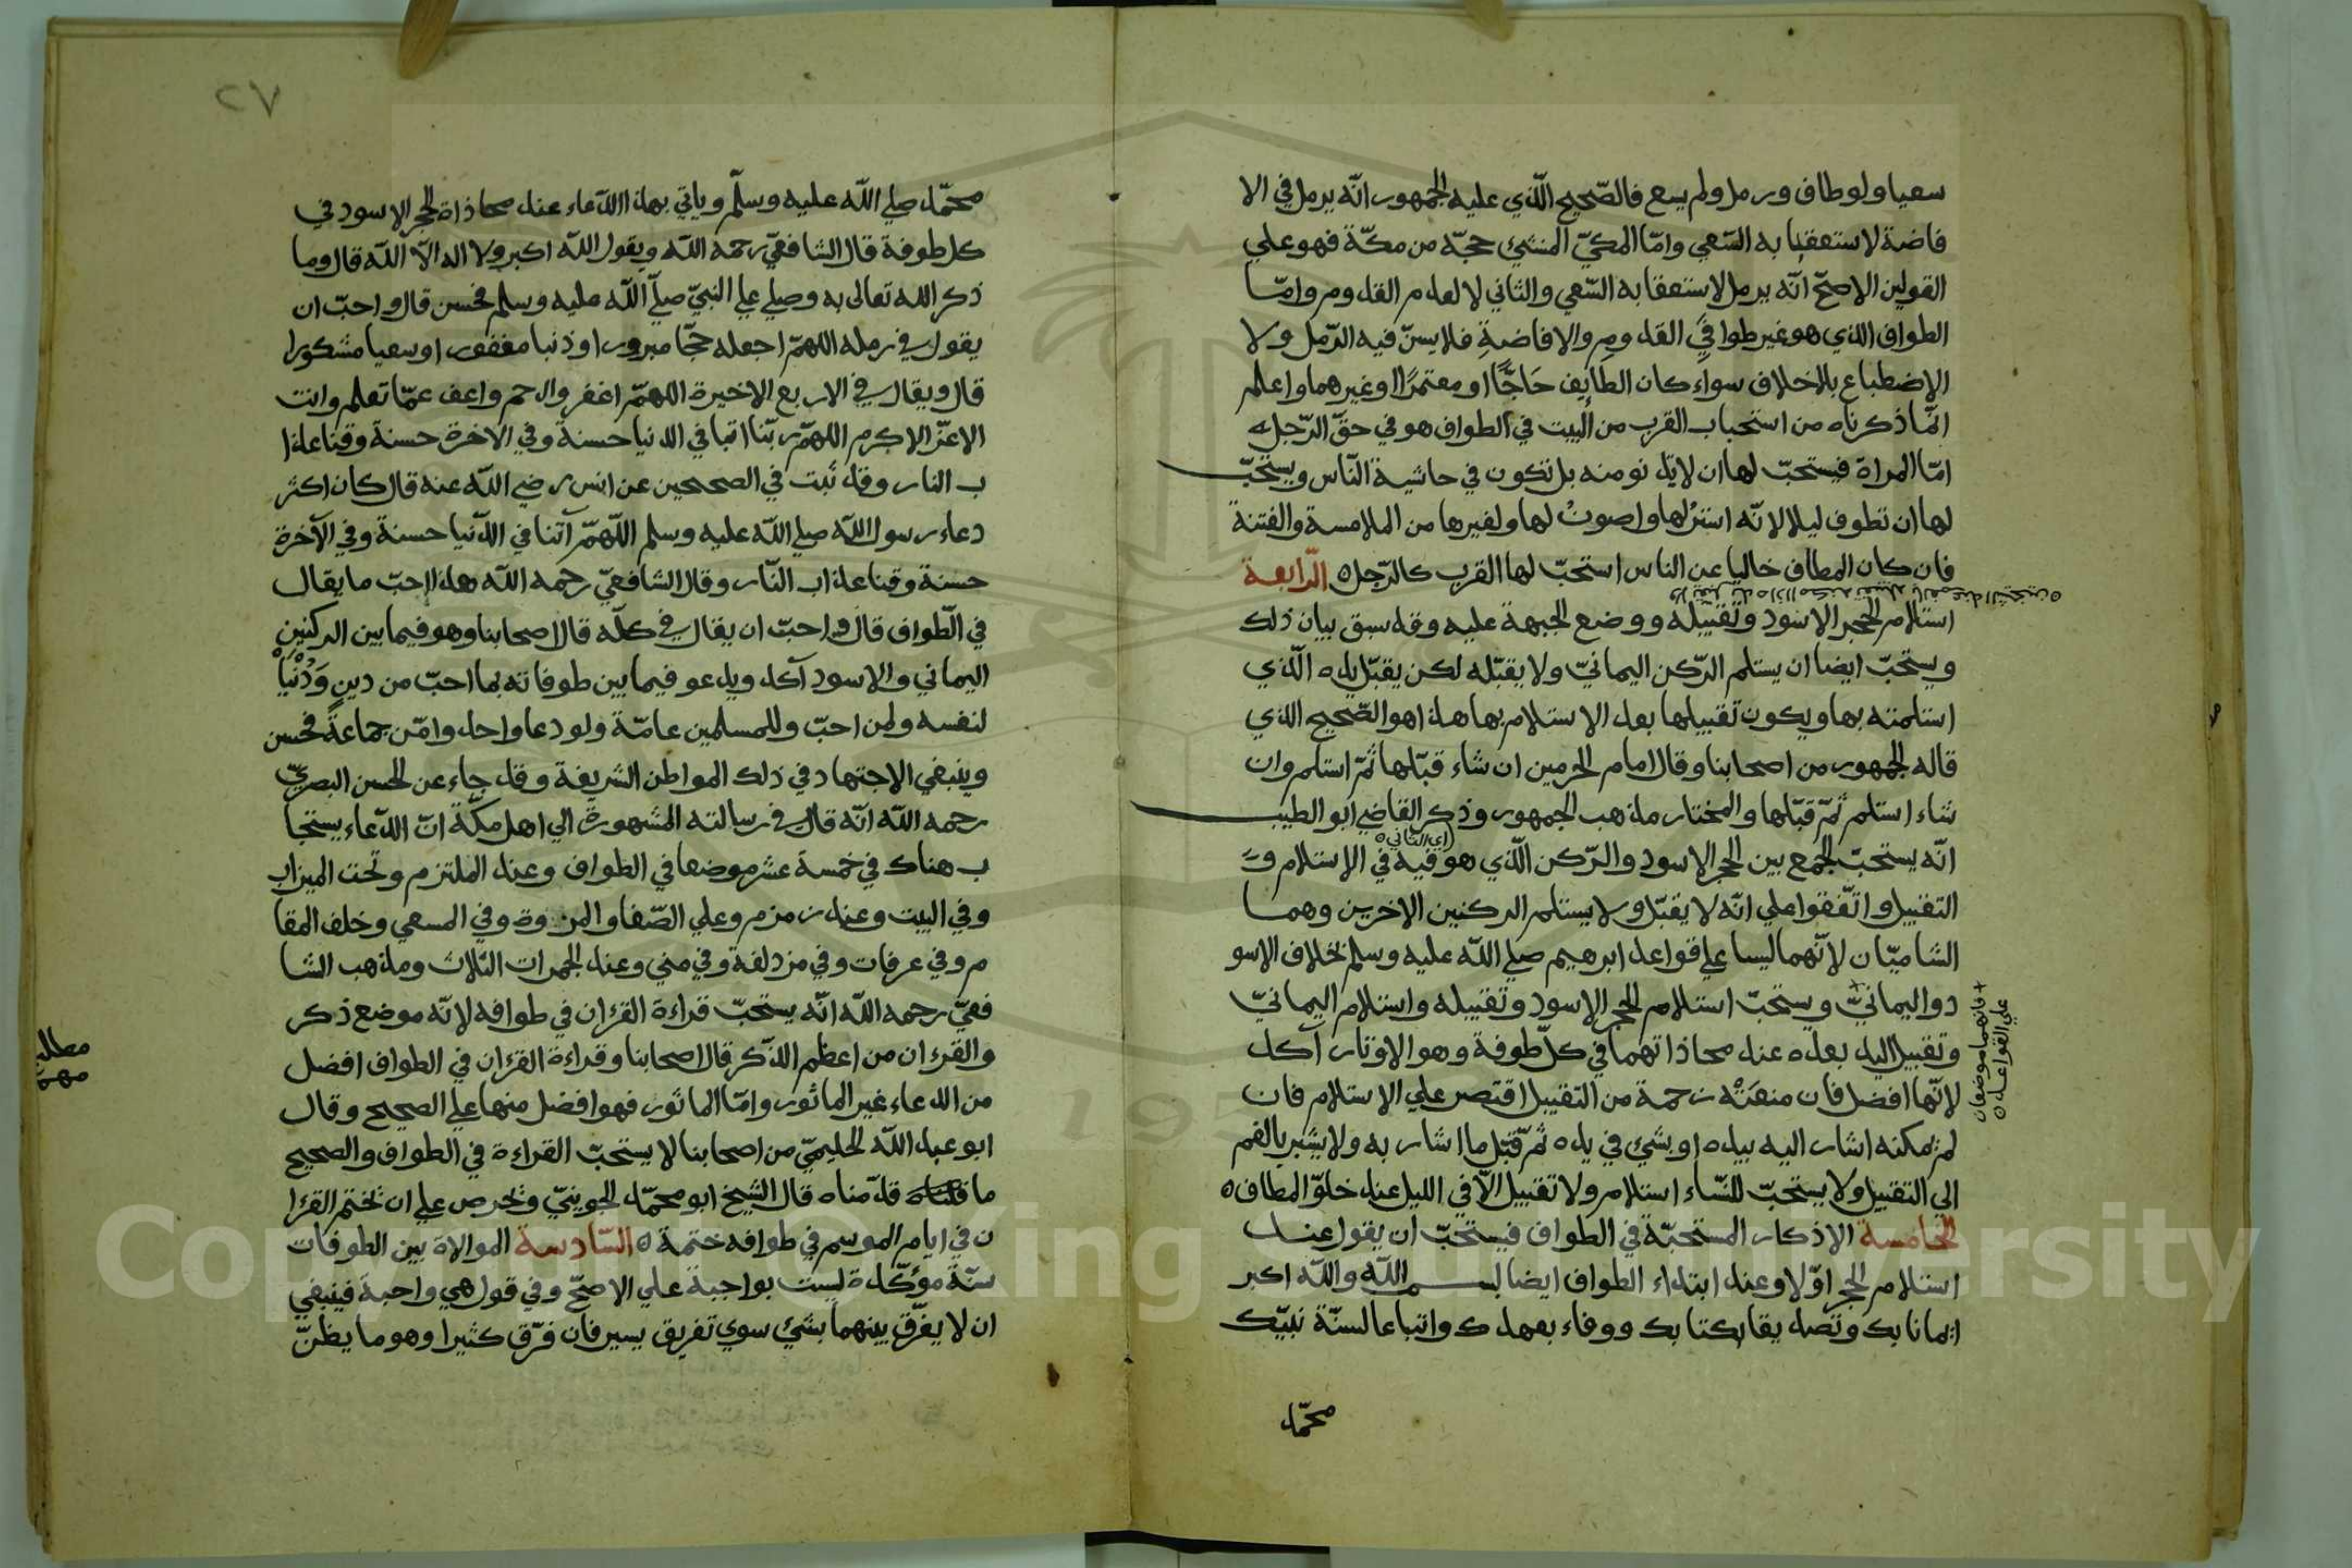 سعيا ولو طاف ورمل ولم يسع فالصّحيح الّذي عليه الجمهور انّه يرمل في الا
فاضة لاستعقابه السّعي وامّا المكيّ المنشئ حجّه من مكّة فهو علي
القولين الاصحّ انّه يرمل لاستعقابه السّعي والثاني لا لعدم القدوم وامّا
الطواف الذي هو غير طوافيَ القدوم والافاضةِ فلا يسنّ فيه الرّمل ولا
الإضطباع بلا خلاف سواء كان الطايف حَاجًّا او معتمرًا او غيرهما واعلم
انّما ذكرناه من استحباب القرب من البيت في الطواف هو في حقّ الرّجل
امّا المراة فيستحبّ لها ان لا تدنو منه بل تكون في حاشية النّاس ويستحبّ
لها ان تطوف ليلا لانّه استرُ لها واصونُ لها ولغيرها من الملامسة والفتنة
فان كان المطاف خاليا عن الناس استحبّ لها القرب كالرّجل ه الرّابعة
استلام الحجر الاسود وتقبيله ووضع الجبهة عليه وقد سبق بيان ذلك
ويستحبّ ايضا ان يستلم الرّكن اليمانيّ ولا يقبّله لكن يقبّل يده الّذي
استلمته بها ويكون تقبيلها بعد الاستلام بها هذا هو الصّحيح الذي
قاله الجمهور من اصحابنا وقال امام الحرمين ان شاء قبّلها ثمّ استلم وان
شاء استلم ثمّ قبّلها والمختار مذهب الجمهور وذكر القاضي ابو الطيب
(اي الثاني ه
انّه يستحبّ الجمع بين الحجر الاسود والرّكن الّذي هو فيه في الاستلام و
التقبيل واتّفقوا علي انّه لا يقبّل ولا يستلم الركنين الاخرين وهما
الشاميّان لانّهما ليسا علي قواعد ابرهيم صلي اللّه عليه وسلم بخلاف الاسو
د واليمانيّ ويستحبّ استلام الحجر الاسود وتقبيله واستلام اليمانيّ
+ فانهما موضعان
علي القواعد ه
وتقبيل اليد بعده عند محاذاتهما في كلّ طوفة وهو الاوتار آكد
لانّها افضل فان منعَتْه زحمة من التقبيل اقتصر علي الاستلام فان
لم يمكنه اشار اليه بيده او بشئ في يده ثمّ قبّل ما اشار به ولا يشير بالفم
الي التقبيل ولا يستحبّ للنّساء استلام ولا تقبيل الّا في الليل عند خلوّ المطاف ه
الخامسة الاذكار المستحبّة في الطواف فيستحبّ ان يقول عند
استلام الحجر اوّلا وعند ابتداء الطواف ايضا بسم اللّه واللّه اكبر
ايمانا بك وتصديقا بكتابك ووفاء بعهدك واتباعا لسنّة نبيّك
محمّد
٢٧
محمّد صلي اللّه عليه وسلّم وياتي بهذا الدّعاء عند محاذاة الحجر الاسود في
كل طوفة قال الشافعيّ رحمه اللّه ويقول اللّه اكبر ولا اله الّا اللّه قال وما
ذكر اللّه تعالى به وصلي علي النبيّ صلّي اللّه عليه وسلم فحسن قال واحبّ ان
يقول في رمله اللهمّ اجعله حجّا مبرورا وذنبا مغفورا وسعيا مشكورا
قال ويقال في الاربع الاخيرة اللهمّ اغفر وارحم واعف عمّا تعلم وانت
الاعزّ الاكرم اللهمّ ربّنا اتنا في الدنيا حسنة وفي الاخرة حسنة وقنا عذا
ب النار وقد ثبت في الصحيحين عن انس رضي اللّه عنه قال كان اكثر
دعاء رسول اللّه صلي اللّه عليه وسلم اللّهمّ آتنا في الدّنيا حسنة وفي الآخرة
حسنة وقنا عذاب النّار وقال الشافعيّ رحمه اللّه هذا احبّ ما يقال
في الطّواف قال واحبّ ان يقال في كلّه قال اصحابنا وهو فيما بين الركنين
اليماني والاسود آكد ويدعو فيما بين طوفاته بما احبّ من دين وَدُنْيَا
لنفسه ولمن احبّ وللمسلمين عامّة ولو دعا واحد وامّن جماعةً فحسن
وينبغي الاجتهاد في ذلك المواطن الشريفة وقد جاء عن الحسن البصريّ
رحمه اللّه انّه قال في رسالته المشهورة الي اهل مكّة انّ الدّعاء يستجا
ب هناك في خمسة عشر موضعا في الطواف وعند الملتزم وتحت الميزاب
وفي البيت وعند زمزم وعلي الصّفا والمروة وفي المسعي وخلف المقا
م وفي عرفات وفي مزدلفة وفي مني وعند الجمرات الثلاث ومذهب الشا
فعيّ رحمه اللّه انّه يستحبّ قراءة القرٰان في طوافه لانّه موضع ذكر
والقرءان من اعظم الذّكر قال اصحابنا وقراءة القرٰان في الطواف افضل
مطالب
مهمّ
من الدعاء غير الماثور وامّا الماثور فهو افضل منها علي الصحيح وقال
ابو عبد اللّه الحليميّ من اصحابنا لا يستحبّ القراءة في الطواف والصحيح
ما قدّمناه قال الشيخ ابو محمّد الجوينيّ وتحرص علي ان تختم القرٰا
ن في ايام الموسم في طوافه ختمة ه السّادسة الموالاة بين الطوفات
سنّة مؤكّدة ليست بواجبة علي الاصحّ وفي قول هي واجبة فينبغي
ان لا يفرّق بينهما بشئ سوي تفريق يسير فان فرّق كثيرا وهو ما يظنّ
Copyright © King Saud University